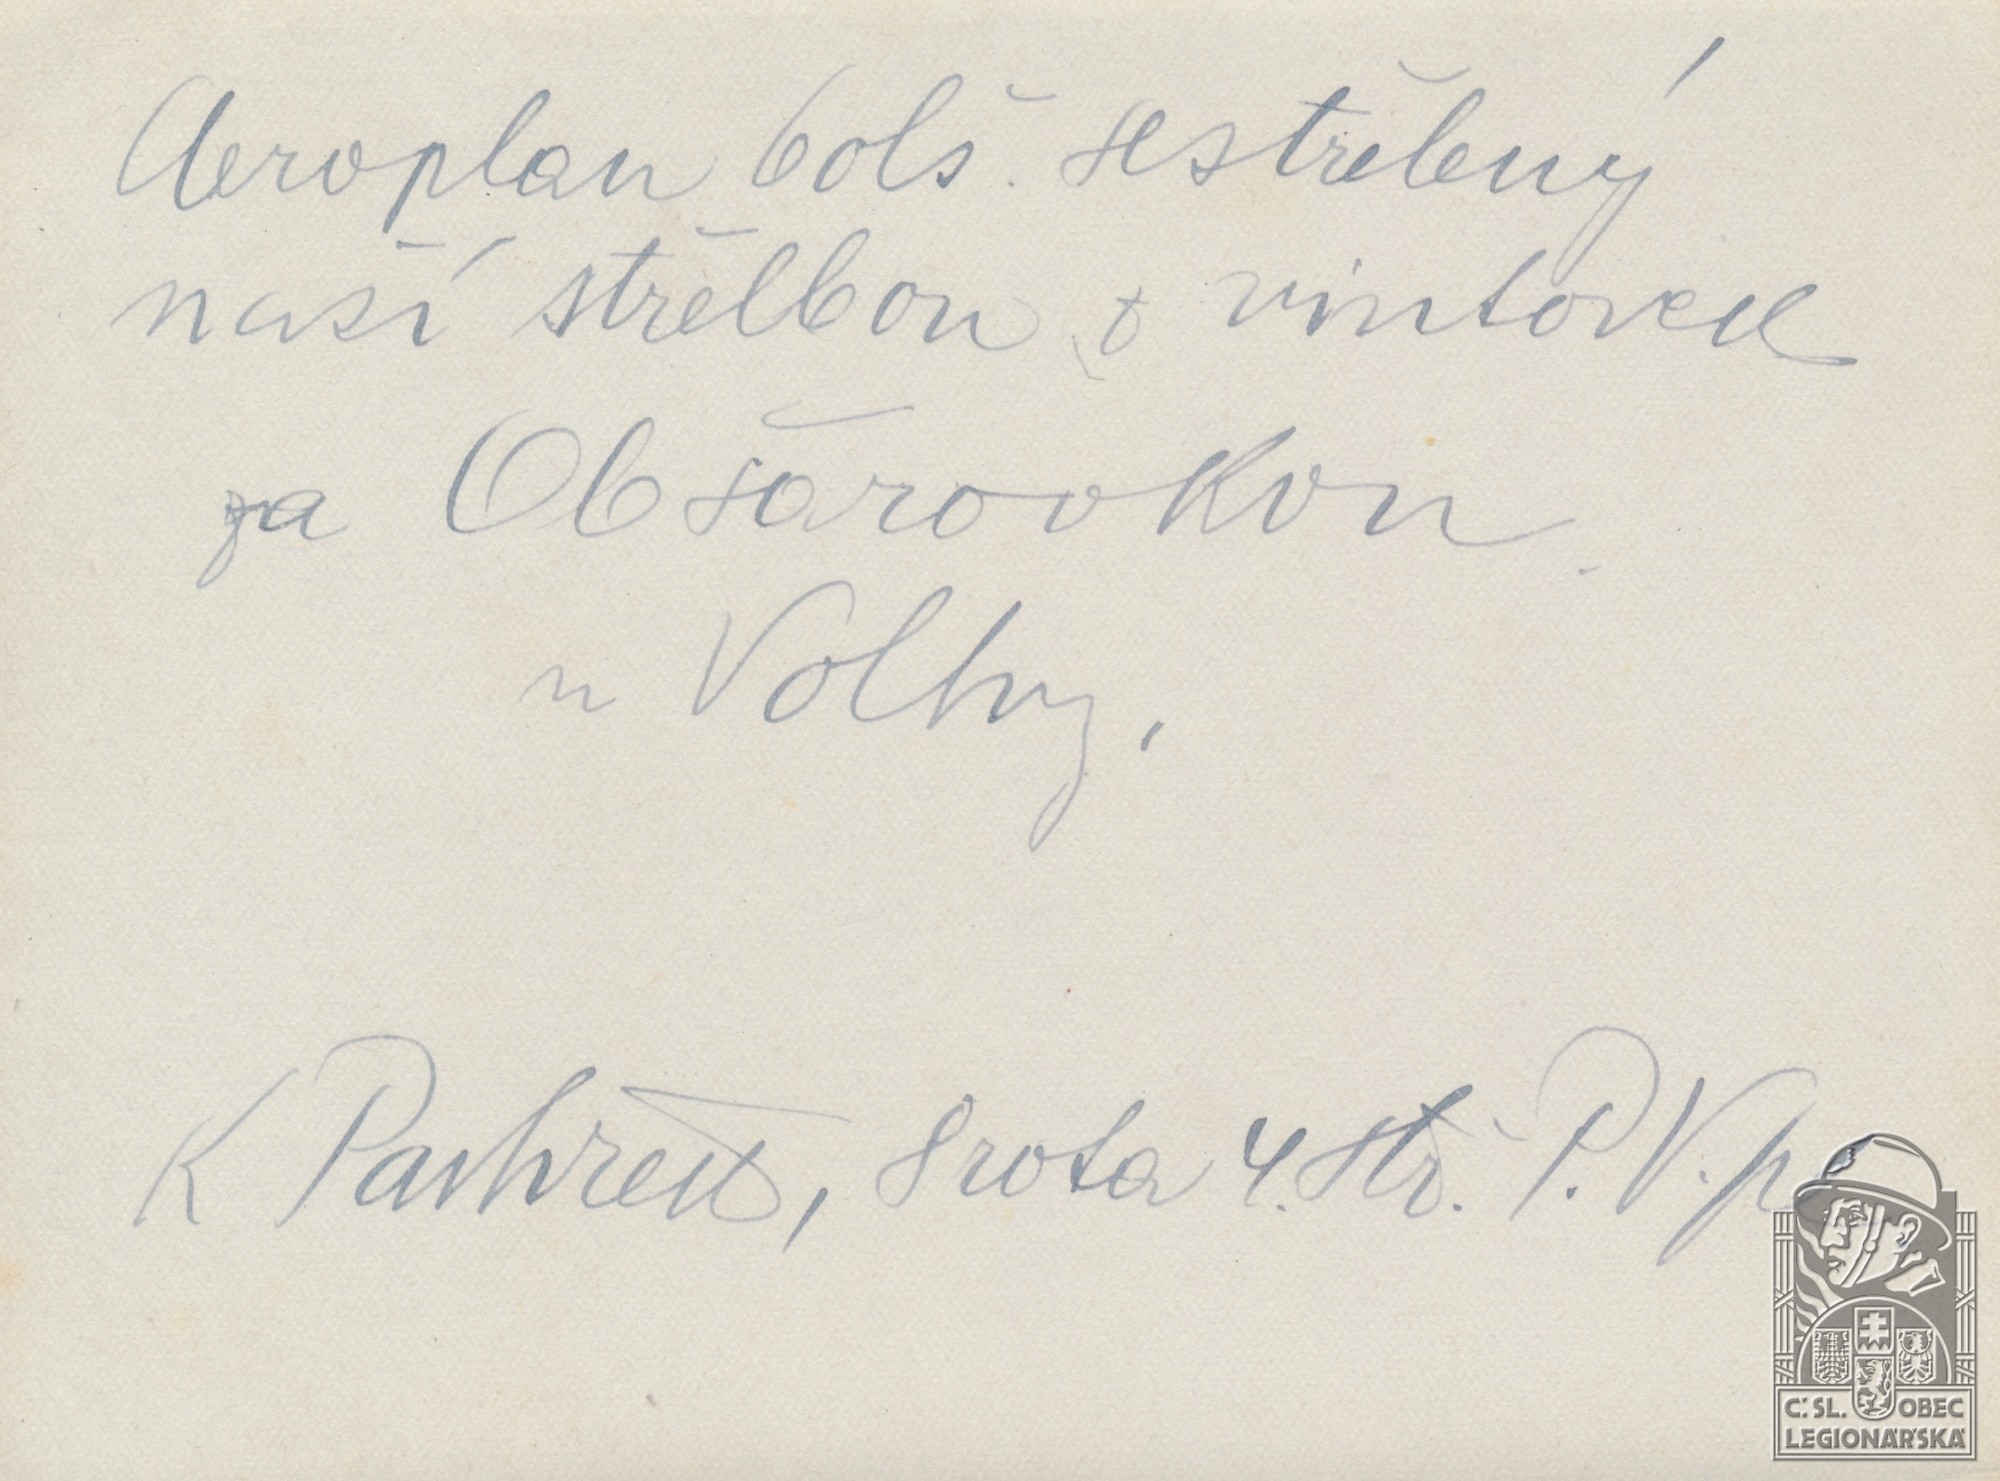 Aeroplan bolš. sestřelený
naší střelbou z vintovek
za Obšárovkou.
u Volhy,
K Pavhřek, 8 rota 4. stř. P. V. p
Č. SL. OBEC
LEGIONÁŘSKÁ